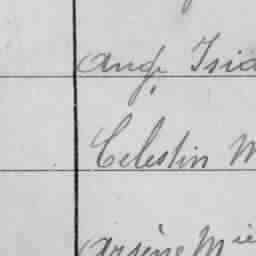 Aug. Isid
Celestin M
Arsène Mie